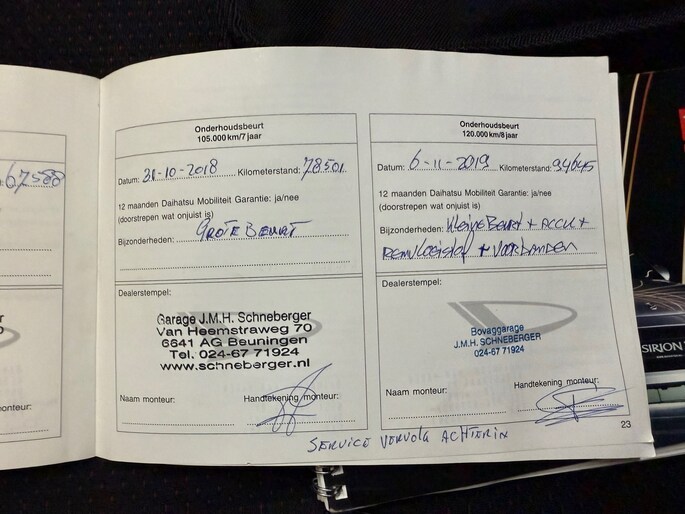 67588
Onderhoudsbeurt
105.000 km/7 jaar
Datum: 31-10-2018 Kilometerstand: 78501
12 maanden Daihatsu Mobiliteit Garantie: ja/nee
(doorstrepen wat onjuist is)
Bijzonderheden: GROTE BEURT
Dealerstempel:
Garage J.M.H. Schneberger
Van Heemstraweg 70
6641 AG Beuningen
Tel. 024-67 71924
www.schneberger.nl
Naam monteur: Handtekening monteur:
Onderhoudsbeurt
120.000 km/8 jaar
Datum: 6-11-2019 Kilometerstand: 94645
12 maanden Daihatsu Mobiliteit Garantie: ja/nee
(doorstrepen wat onjuist is)
Bijzonderheden: Kleine Beurt + ACCU +
Remvloeistof + VOORBANDEN
Dealerstempel:
Bovaggarage
J.M.H. SCHNEBERGER
024-67 71924
Naam monteur: Handtekening monteur:
23
SERVICE VERVOLG ACHTERIN
monteur:
SIRION